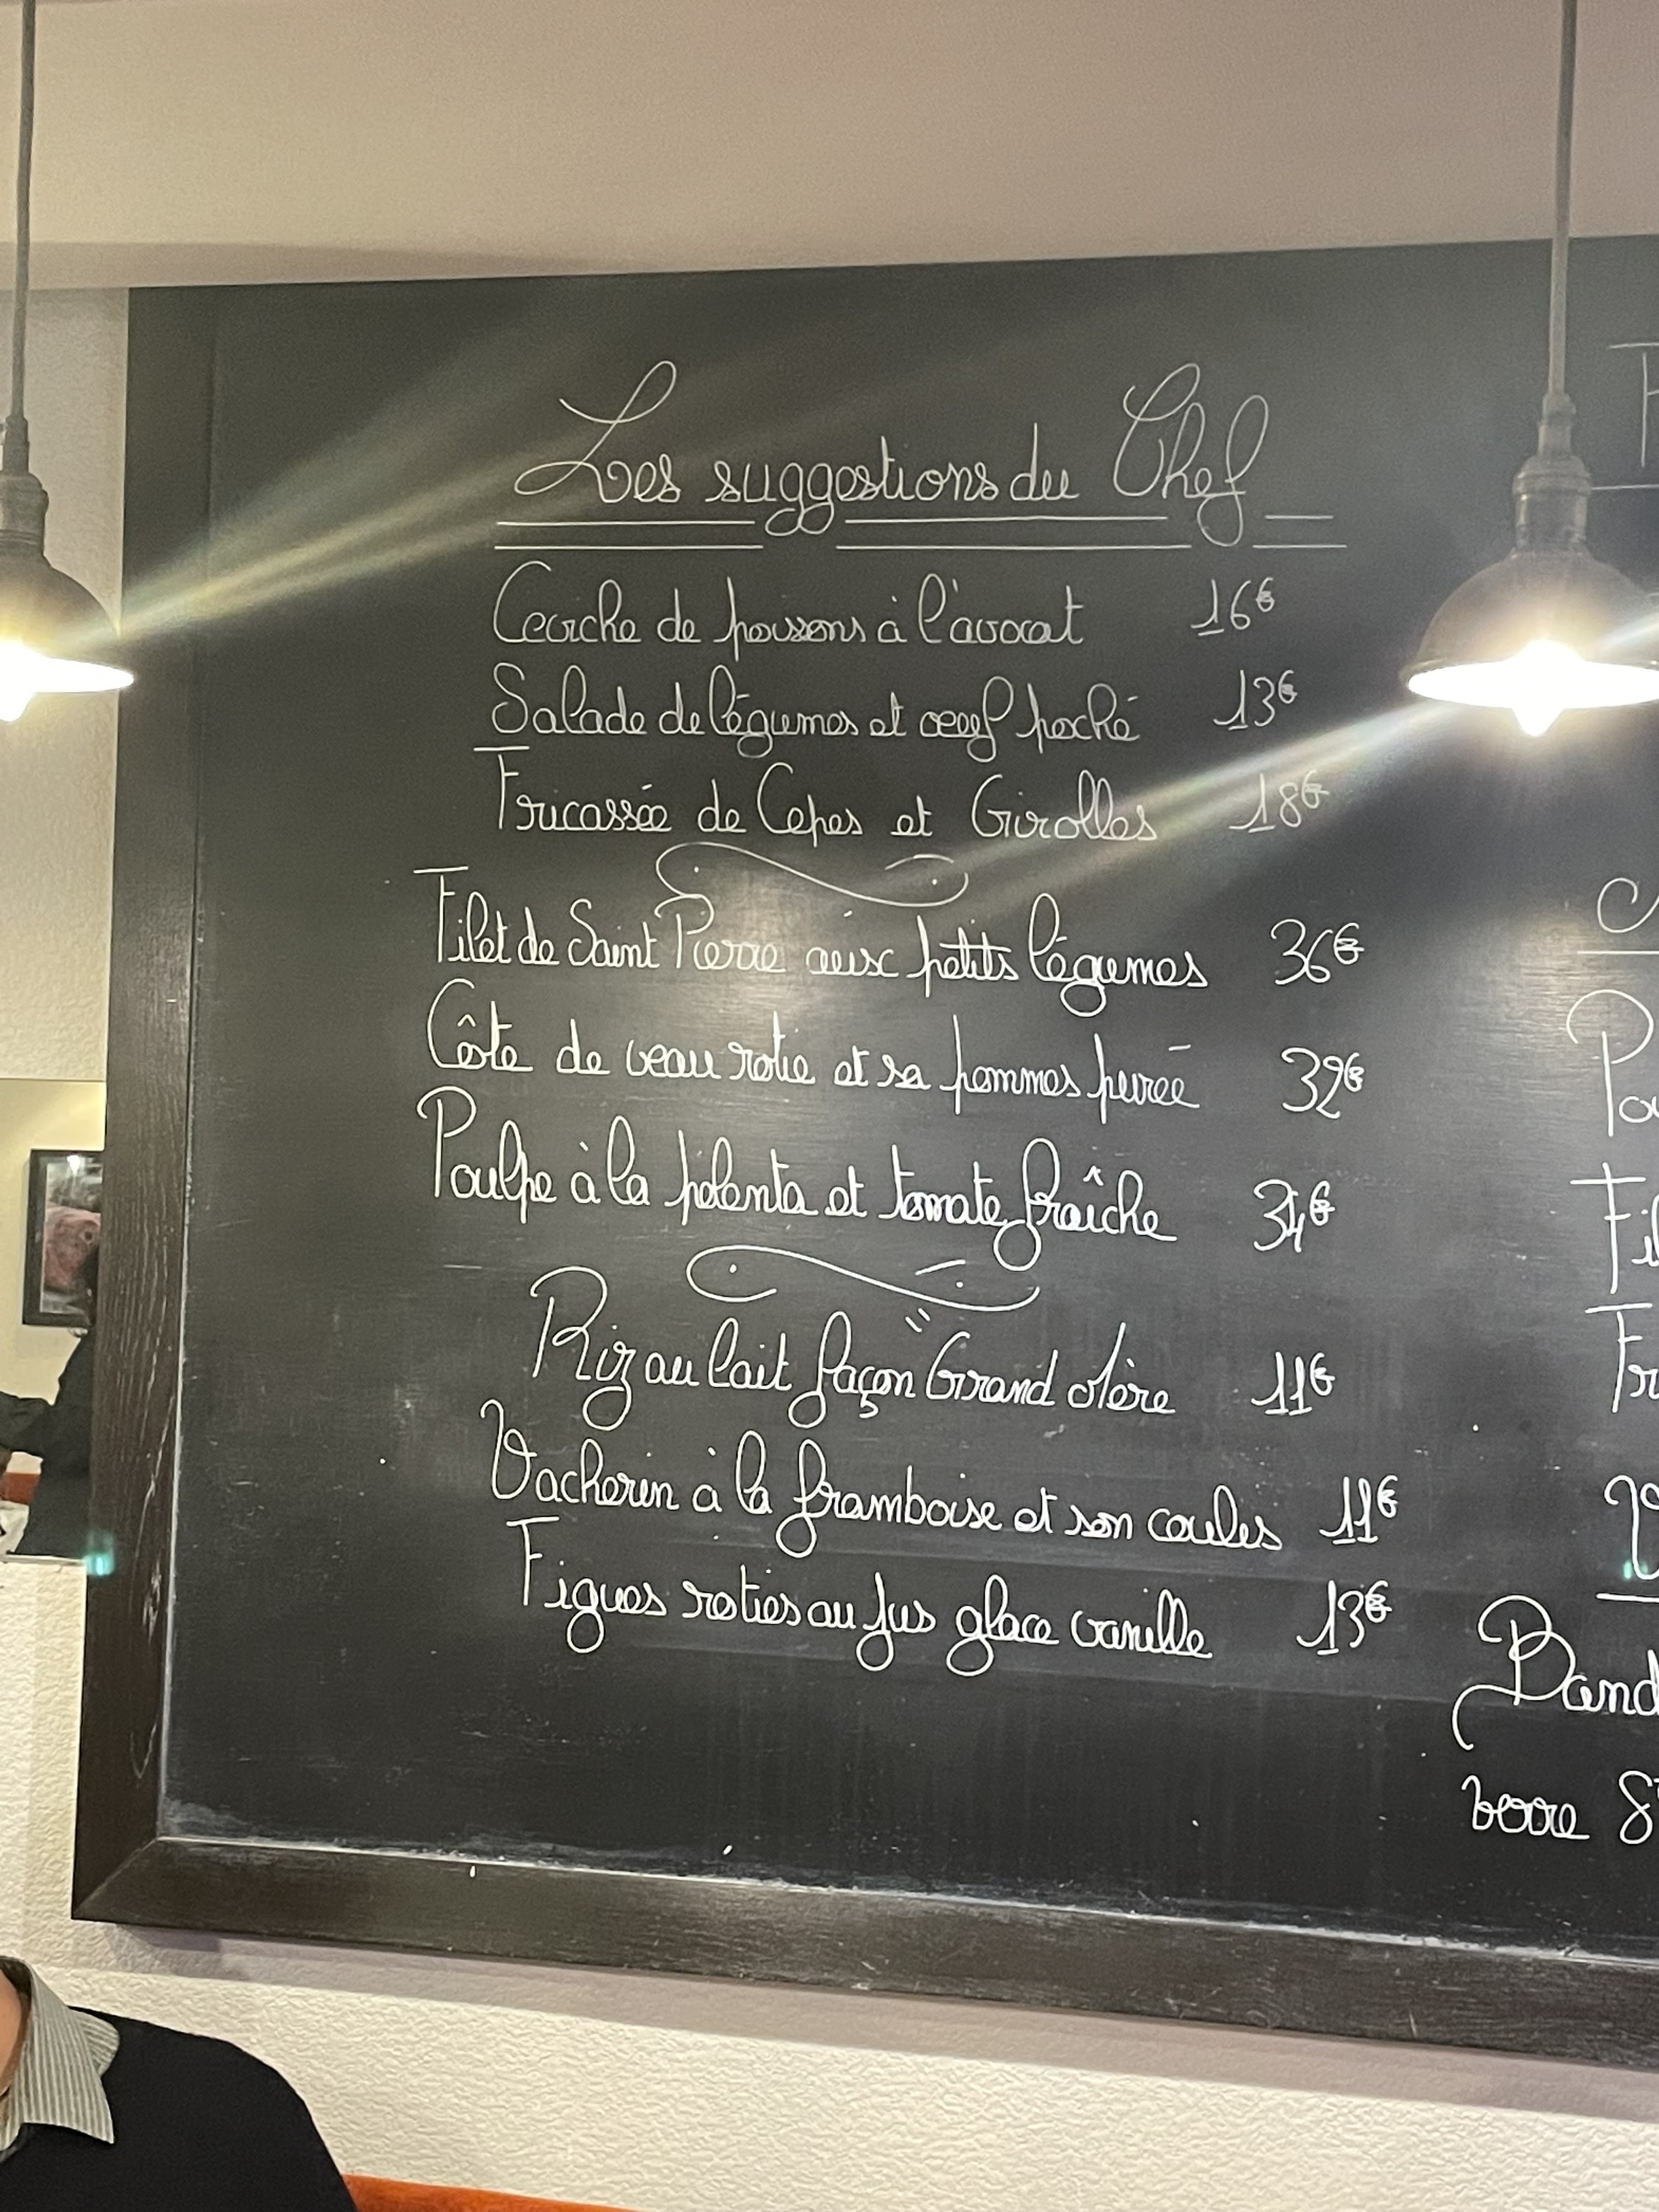 Les suggestions du Chef
Ceviche de poissons à l'avocat 16€
Salade de légumes et oeuf poché 13€
Fricassée de Cepes et Girolles 18€
Filet de Saint Pierre aux petits légumes 36€
Côte de veau rotie et sa pommes purée 32€
Poulpe à la polenta et tomate fraîche 34€
Riz au lait façon "Grand Mère 11€
Vacherin à la framboise et son coulis 11€
Figues roties au jus glace vanille 13€
Pou
Fil
Fr
Band
verre 8